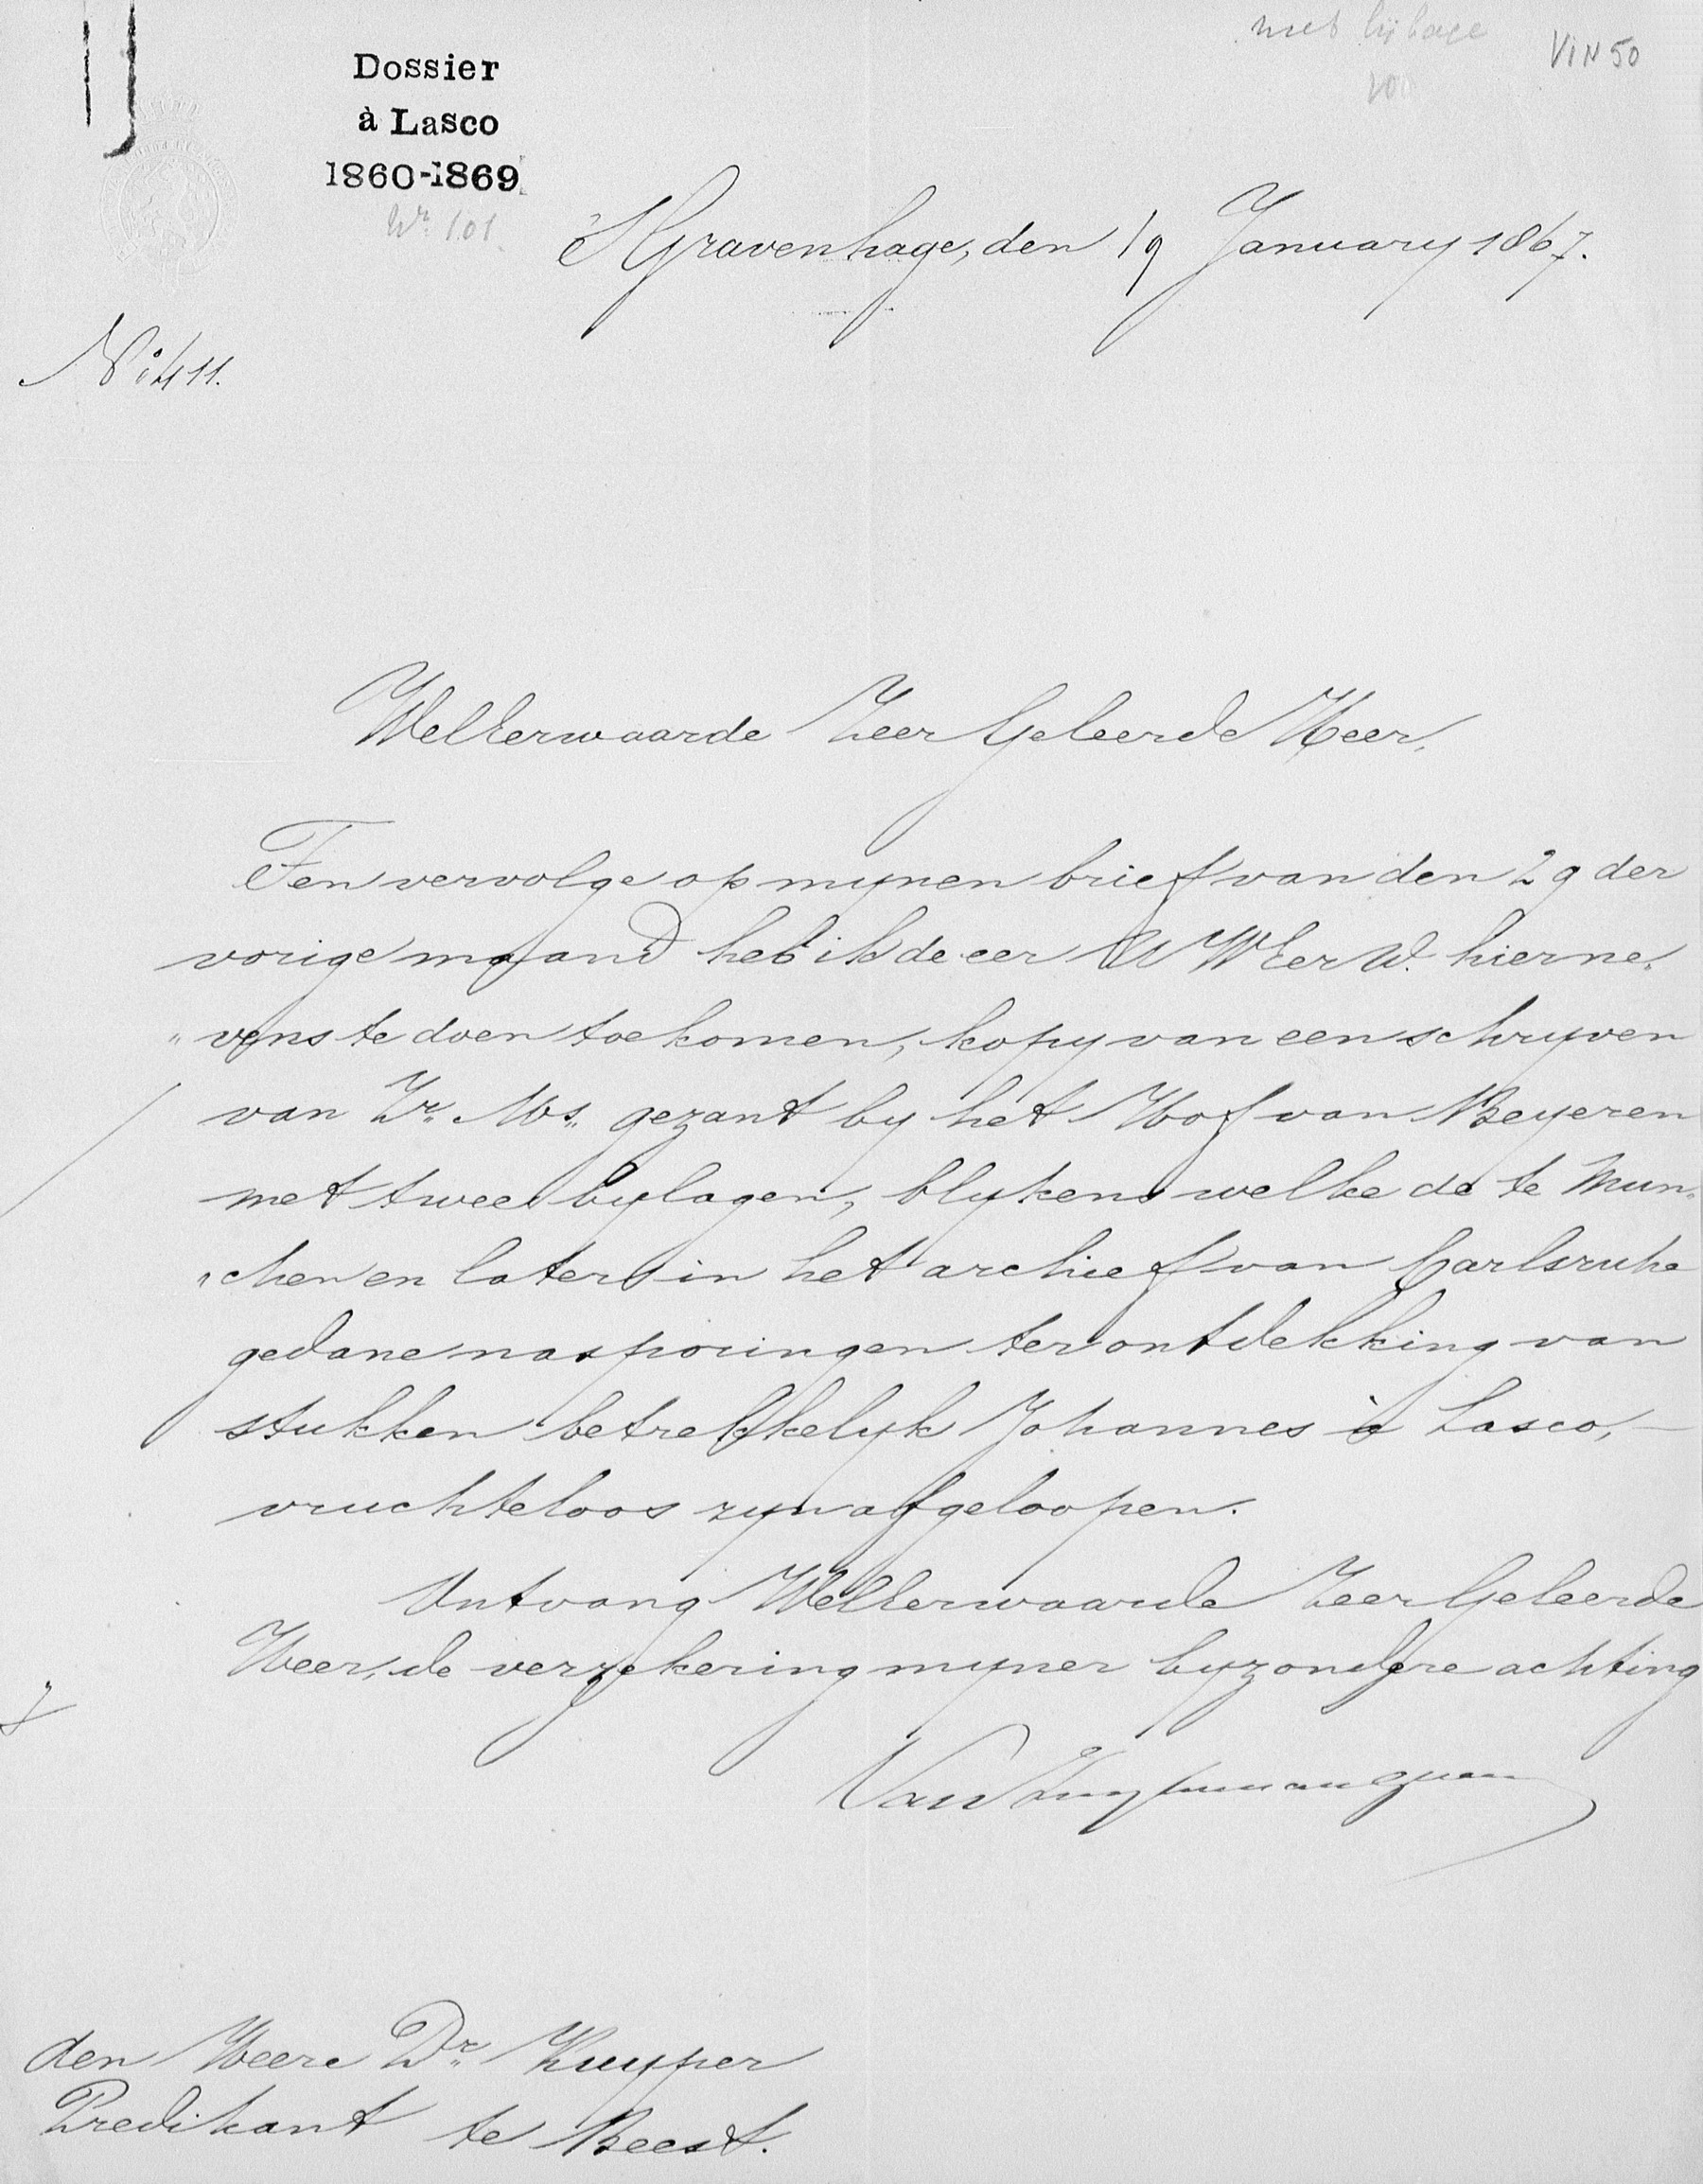 met bijlage
VIN 50
Dossier
à Lasco
1860-1869
Nr. 101.
's Gravenhage, den 19 January 1867.
No. 411.
WelEerwaarde Zeer Geleerde Heer,
Ten vervolge op mynen brief van den 29 der
vorige maand heb ik de eer UWEerw. hierne„
„vens te doen toekomen, kopy van een schryven
van Zr. Ms. gezant by het Hof van Beyeren
met twee bylagen, blykens welke de te Mun„
„chen en later in het archief van Carlsruhe
gedane nasporingen ter ontdekking van
stukken betrekkelyk Johannes à Lasco,
vruchteloos zyn afgeloopen.
Ontvang WelEerwaarde Zeer Geleerde
Heer, de verzekering myner byzondere achting
Van Zuylen van
den Heere Dr. Kuyper
Predikant te Beest.